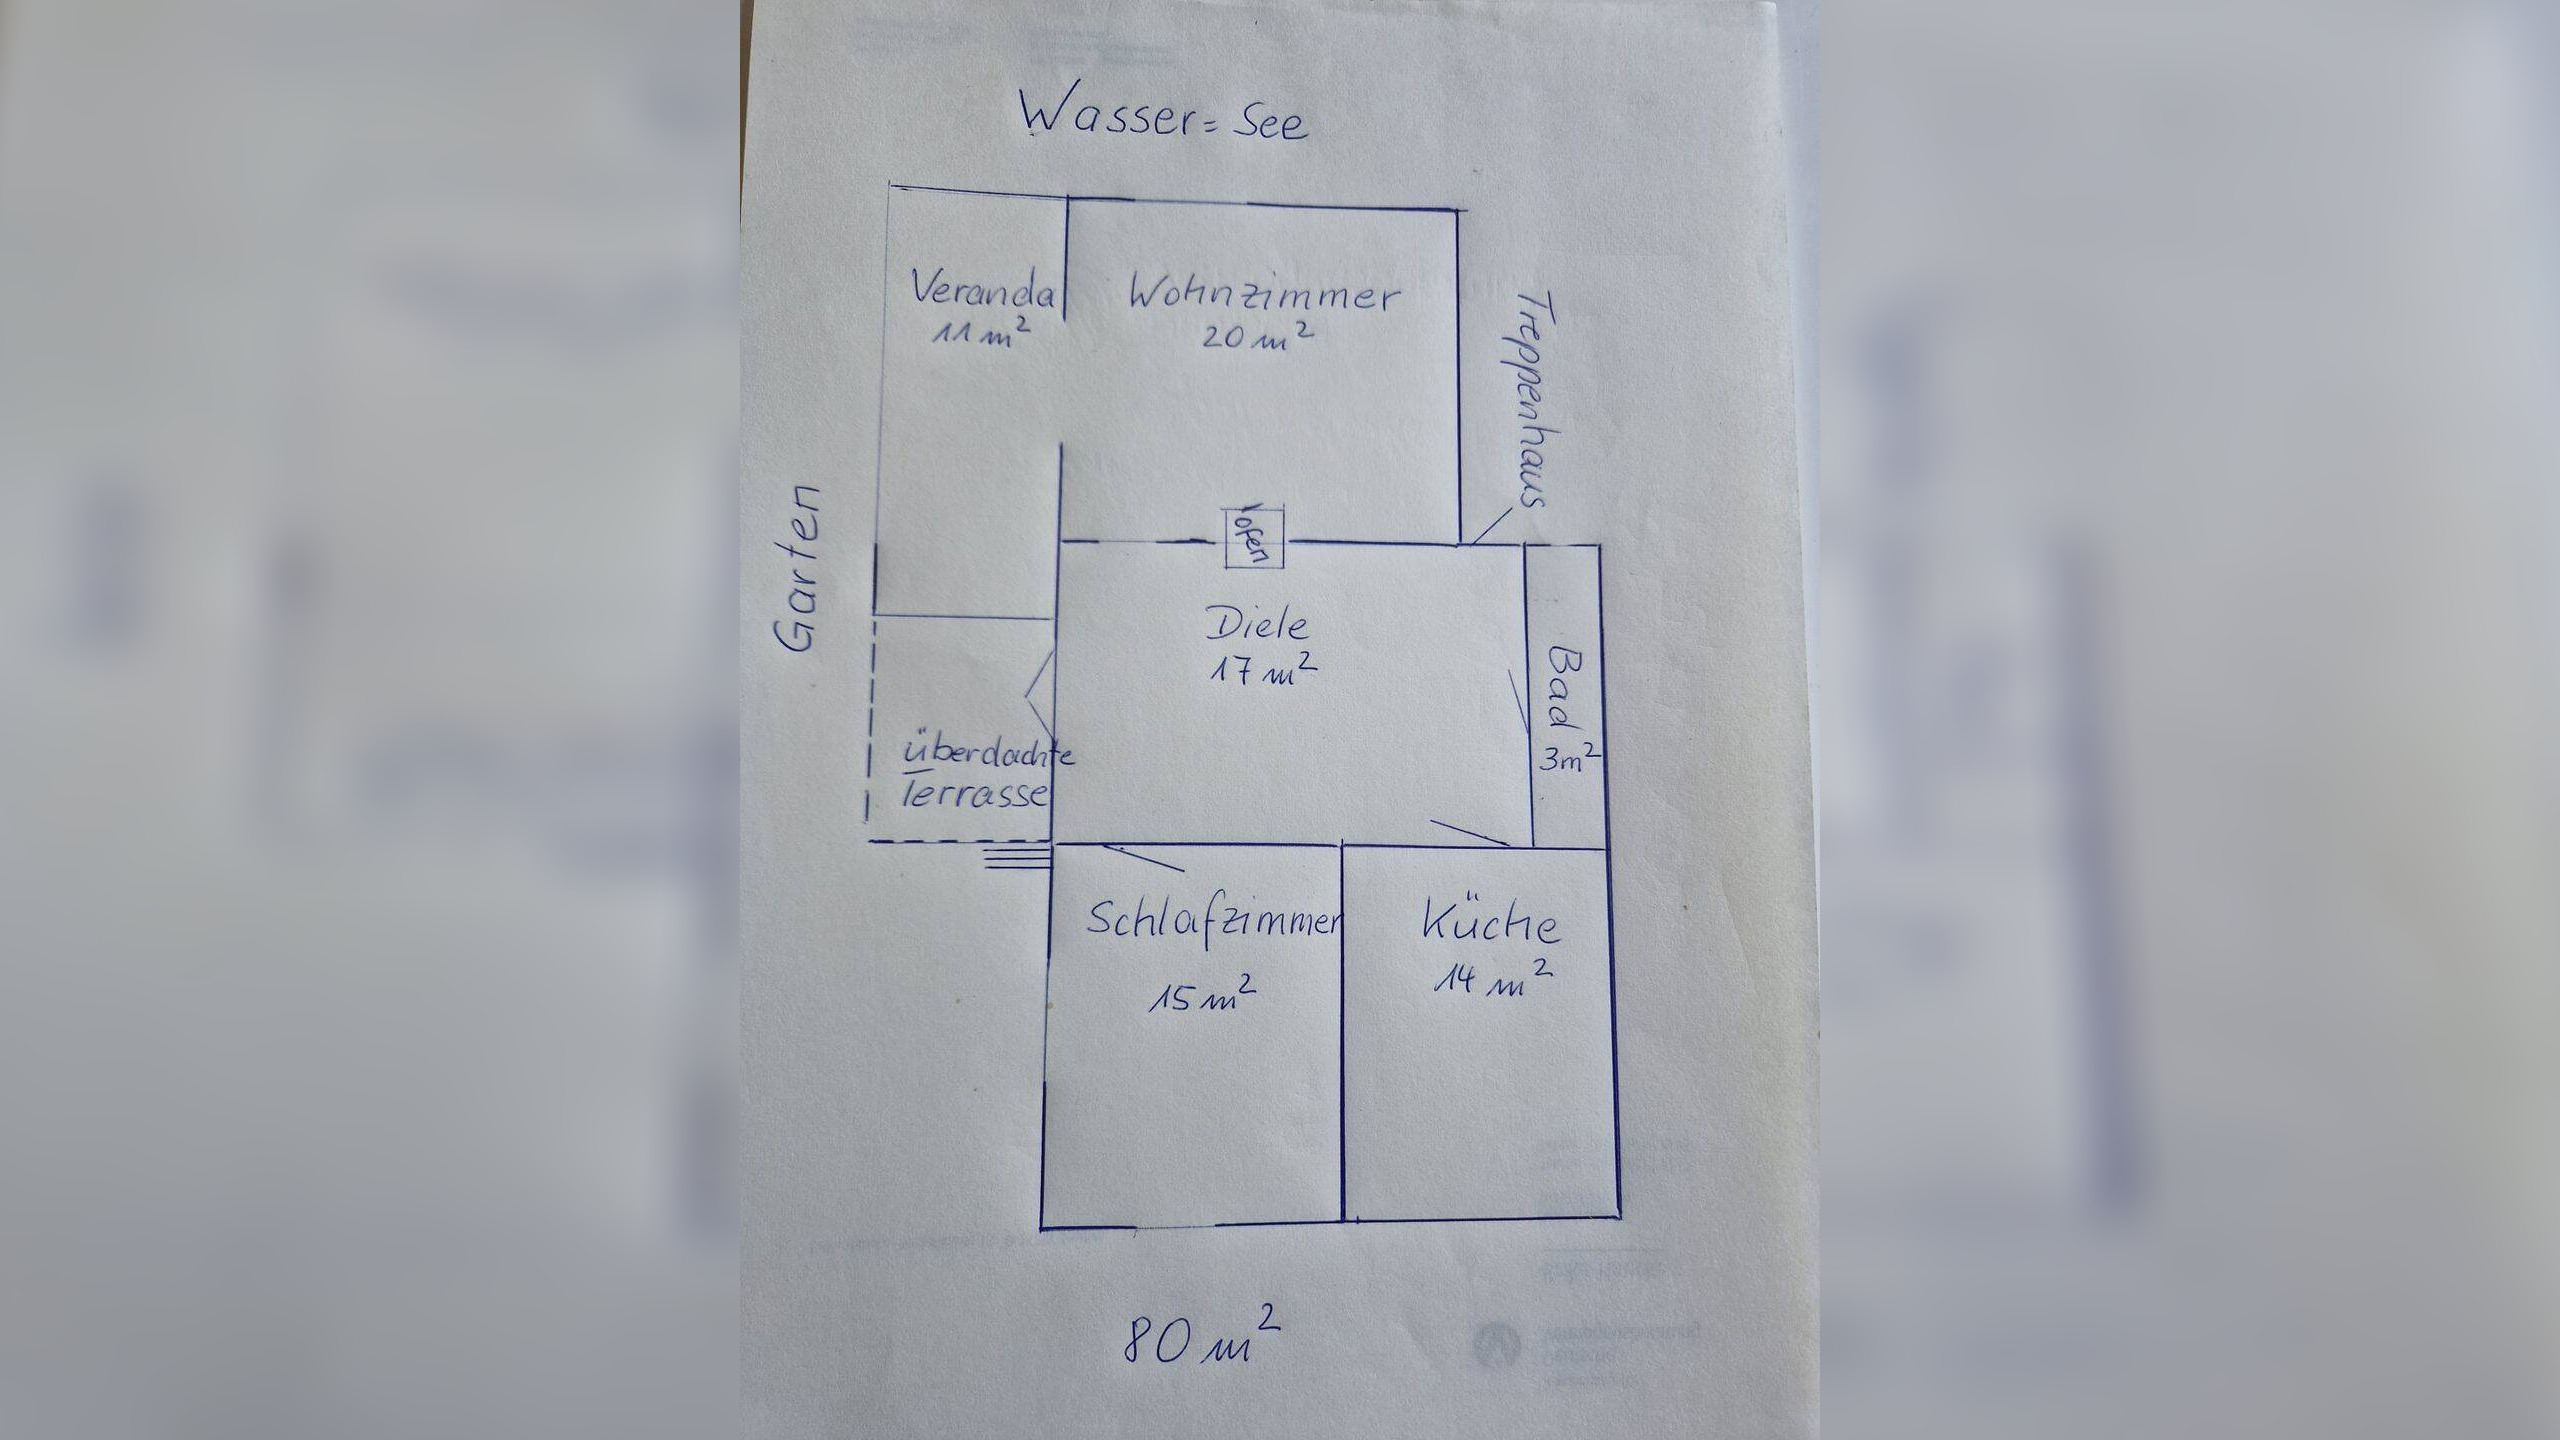 Wasser = See
Veranda
11 m²
Wohnzimmer
20 m²
Treppenhaus
Garten
Ofen
Diele
17 m²
Bad
3m²
überdachte
Terrasse
Schlafzimmer
15 m²
Küche
14 m²
80 m²